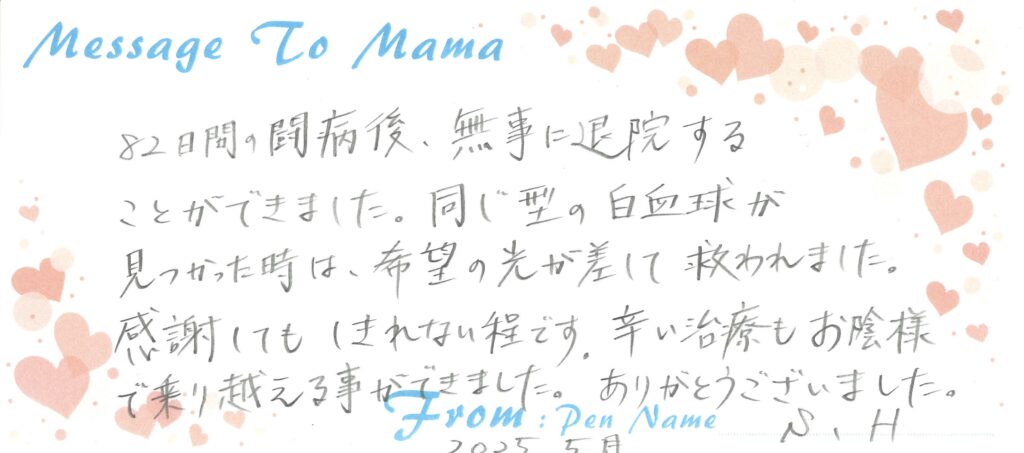 Message To Mama
82日間の闘病後、無事に退院する
ことができました。同じ型の白血球が
見つかった時は、希望の光が差して救われました。
感謝してもしきれない程です。辛い治療もお陰様
で乗り越える事ができました。ありがとうございました。
From : Pen Name S、H
2025 5月